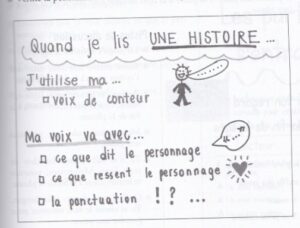 Quand je lis UNE HISTOIRE ...
J'utilise ma ...
voix de conteur
Ma voix va avec ...
ce que dit le personnage
ce que ressent le personnage
la ponctuation ! ? ...